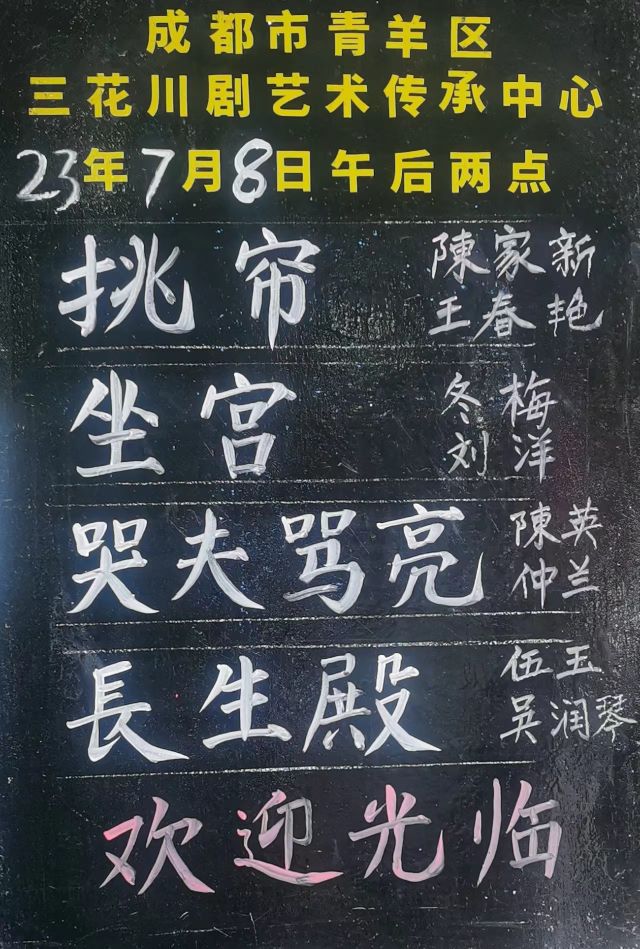 成都市青羊区
三花川剧艺术传承中心
23年7月8日午后两点
挑帘 陳家新
王春艳
坐宫 冬梅
刘洋
哭夫骂亮 陳英
仲兰
長生殿 伍玉
吴润琴
欢迎光临